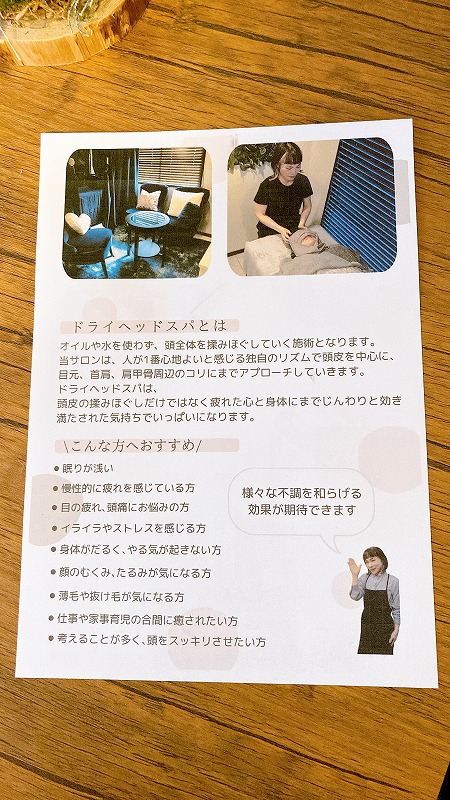 ドライヘッドスパとは
オイルや水を使わず、頭全体を揉みほぐしていく施術となります。
当サロンは、人が1番心地よいと感じる独自のリズムで頭皮を中心に、
目元、首肩、肩甲骨周辺のコリにまでアプローチしていきます。
ドライヘッドスパは、
頭皮の揉みほぐしだけではなく疲れた心と身体にまでじんわりと効き
満たされた気持ちでいっぱいになります。
\こんな方へおすすめ/
●眠りが浅い
●慢性的に疲れを感じている方
●目の疲れ、頭痛にお悩みの方
●イライラやストレスを感じる方
●身体がだるく、やる気が起きない方
●顔のむくみ、たるみが気になる方
●薄毛や抜け毛が気になる方
●仕事や家事育児の合間に癒されたい方
●考えることが多く、頭をスッキリさせたい方
様々な不調を和らげる
効果が期待できます